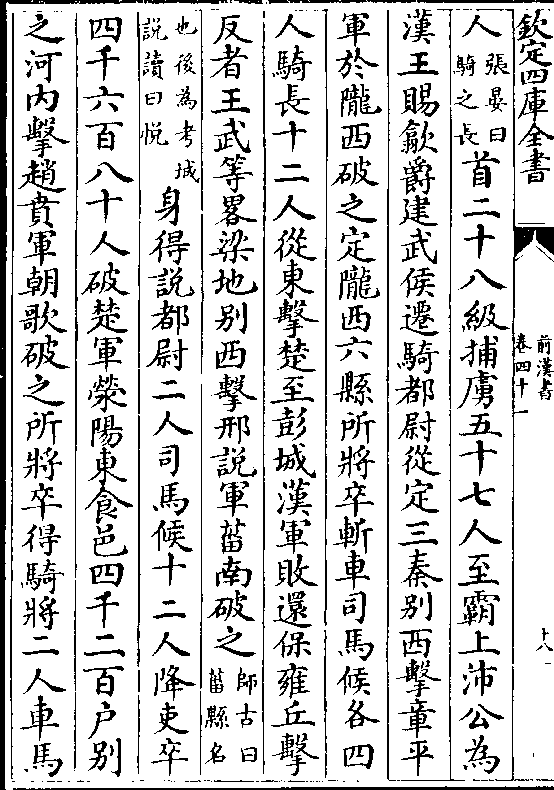 欽定四庫全書
前漢書
卷四十一
十八
人張晏曰騎之長首二十八級捕虜五十七人至霸上沛公為
漢王賜歙爵建武侯遷騎都尉從定三秦别西擊章平
軍於隴西破之定隴西六縣所將卒斬車司馬候各四
人騎長十二人從東擊楚至彭城漢軍敗還保雍丘擊
反者王武等畧梁地别西擊邢説軍菑南破之師古曰菑縣名
也後為考城説讀曰悦身得説都尉二人司馬候十二人降吏卒
四千六百八十人破楚軍滎陽東食邑四千二百户别
之河内擊趙賁軍朝歌破之所將卒得騎將二人車馬